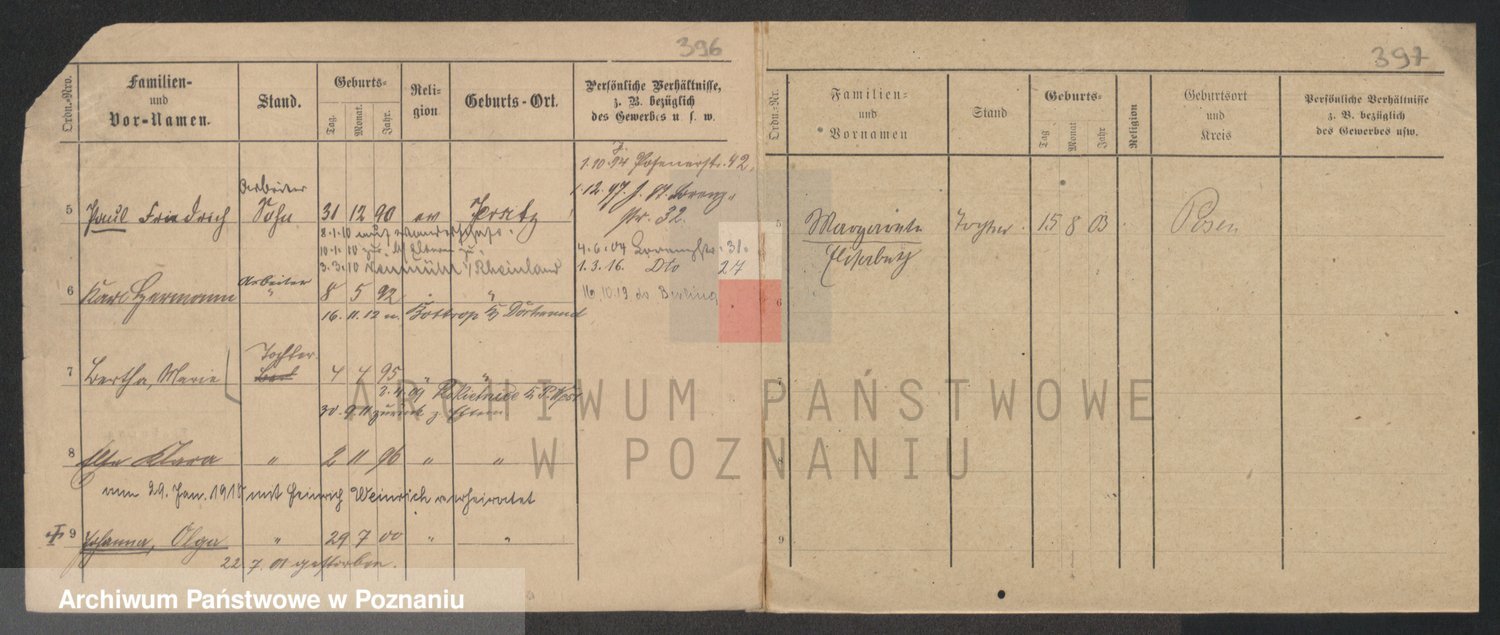 396
Ordn.-Nro.
Familien-
und
Vor-Namen.
Stand.
Geburts-
Tag.
Monat.
Jahr.
Reli-
gion
Geburts-Ort.
Persönliche Verhältnisse,
z. B. bezüglich
des Gewerbes u. s. w.
1.10.94 Posenerstr. 42.
Arbeiter
1.12.97
5 Paul Friedrich Sohn 31 12 90 ev Jersitz
Str. 32.
8.1.10 auf Wanderschaft.
10.1.10 zur. Eltern
4.6.04 31.
3.3.10 Rheinland
1.3.16. Dto 27
Arbeiter
6 Karl Hermann " 8 5 92 "
16.10.19 do
16.11.12 n. Bottrop Dortmund
Tochter
7 Bertha, Marie 4 4 95 " "
2.4.09
30.9.11 zurück z. Eltern
8 Else Klara " 2 11 96 " "
am 29. Jan. 1918 mit Heinrich Weinrich verheiratet
9 Johanna, Olga " 29 7 00 " "
22.7.01 gestorben.
397
Ordn.-Nr.
Familien-
und
Vornamen
Stand
Geburts-
Tag
Monat
Jahr
Religion
Geburtsort
und
Kreis
Persönliche Verhältnisse
z. B. bezüglich
des Gewerbes usw.
5 Margarete Tochter. 15 8 03 Posen
Elisabeth
6
7
8
9
ARCHIWUM PAŃSTWOWE
W POZNANIU
Archiwum Państwowe w Poznaniu